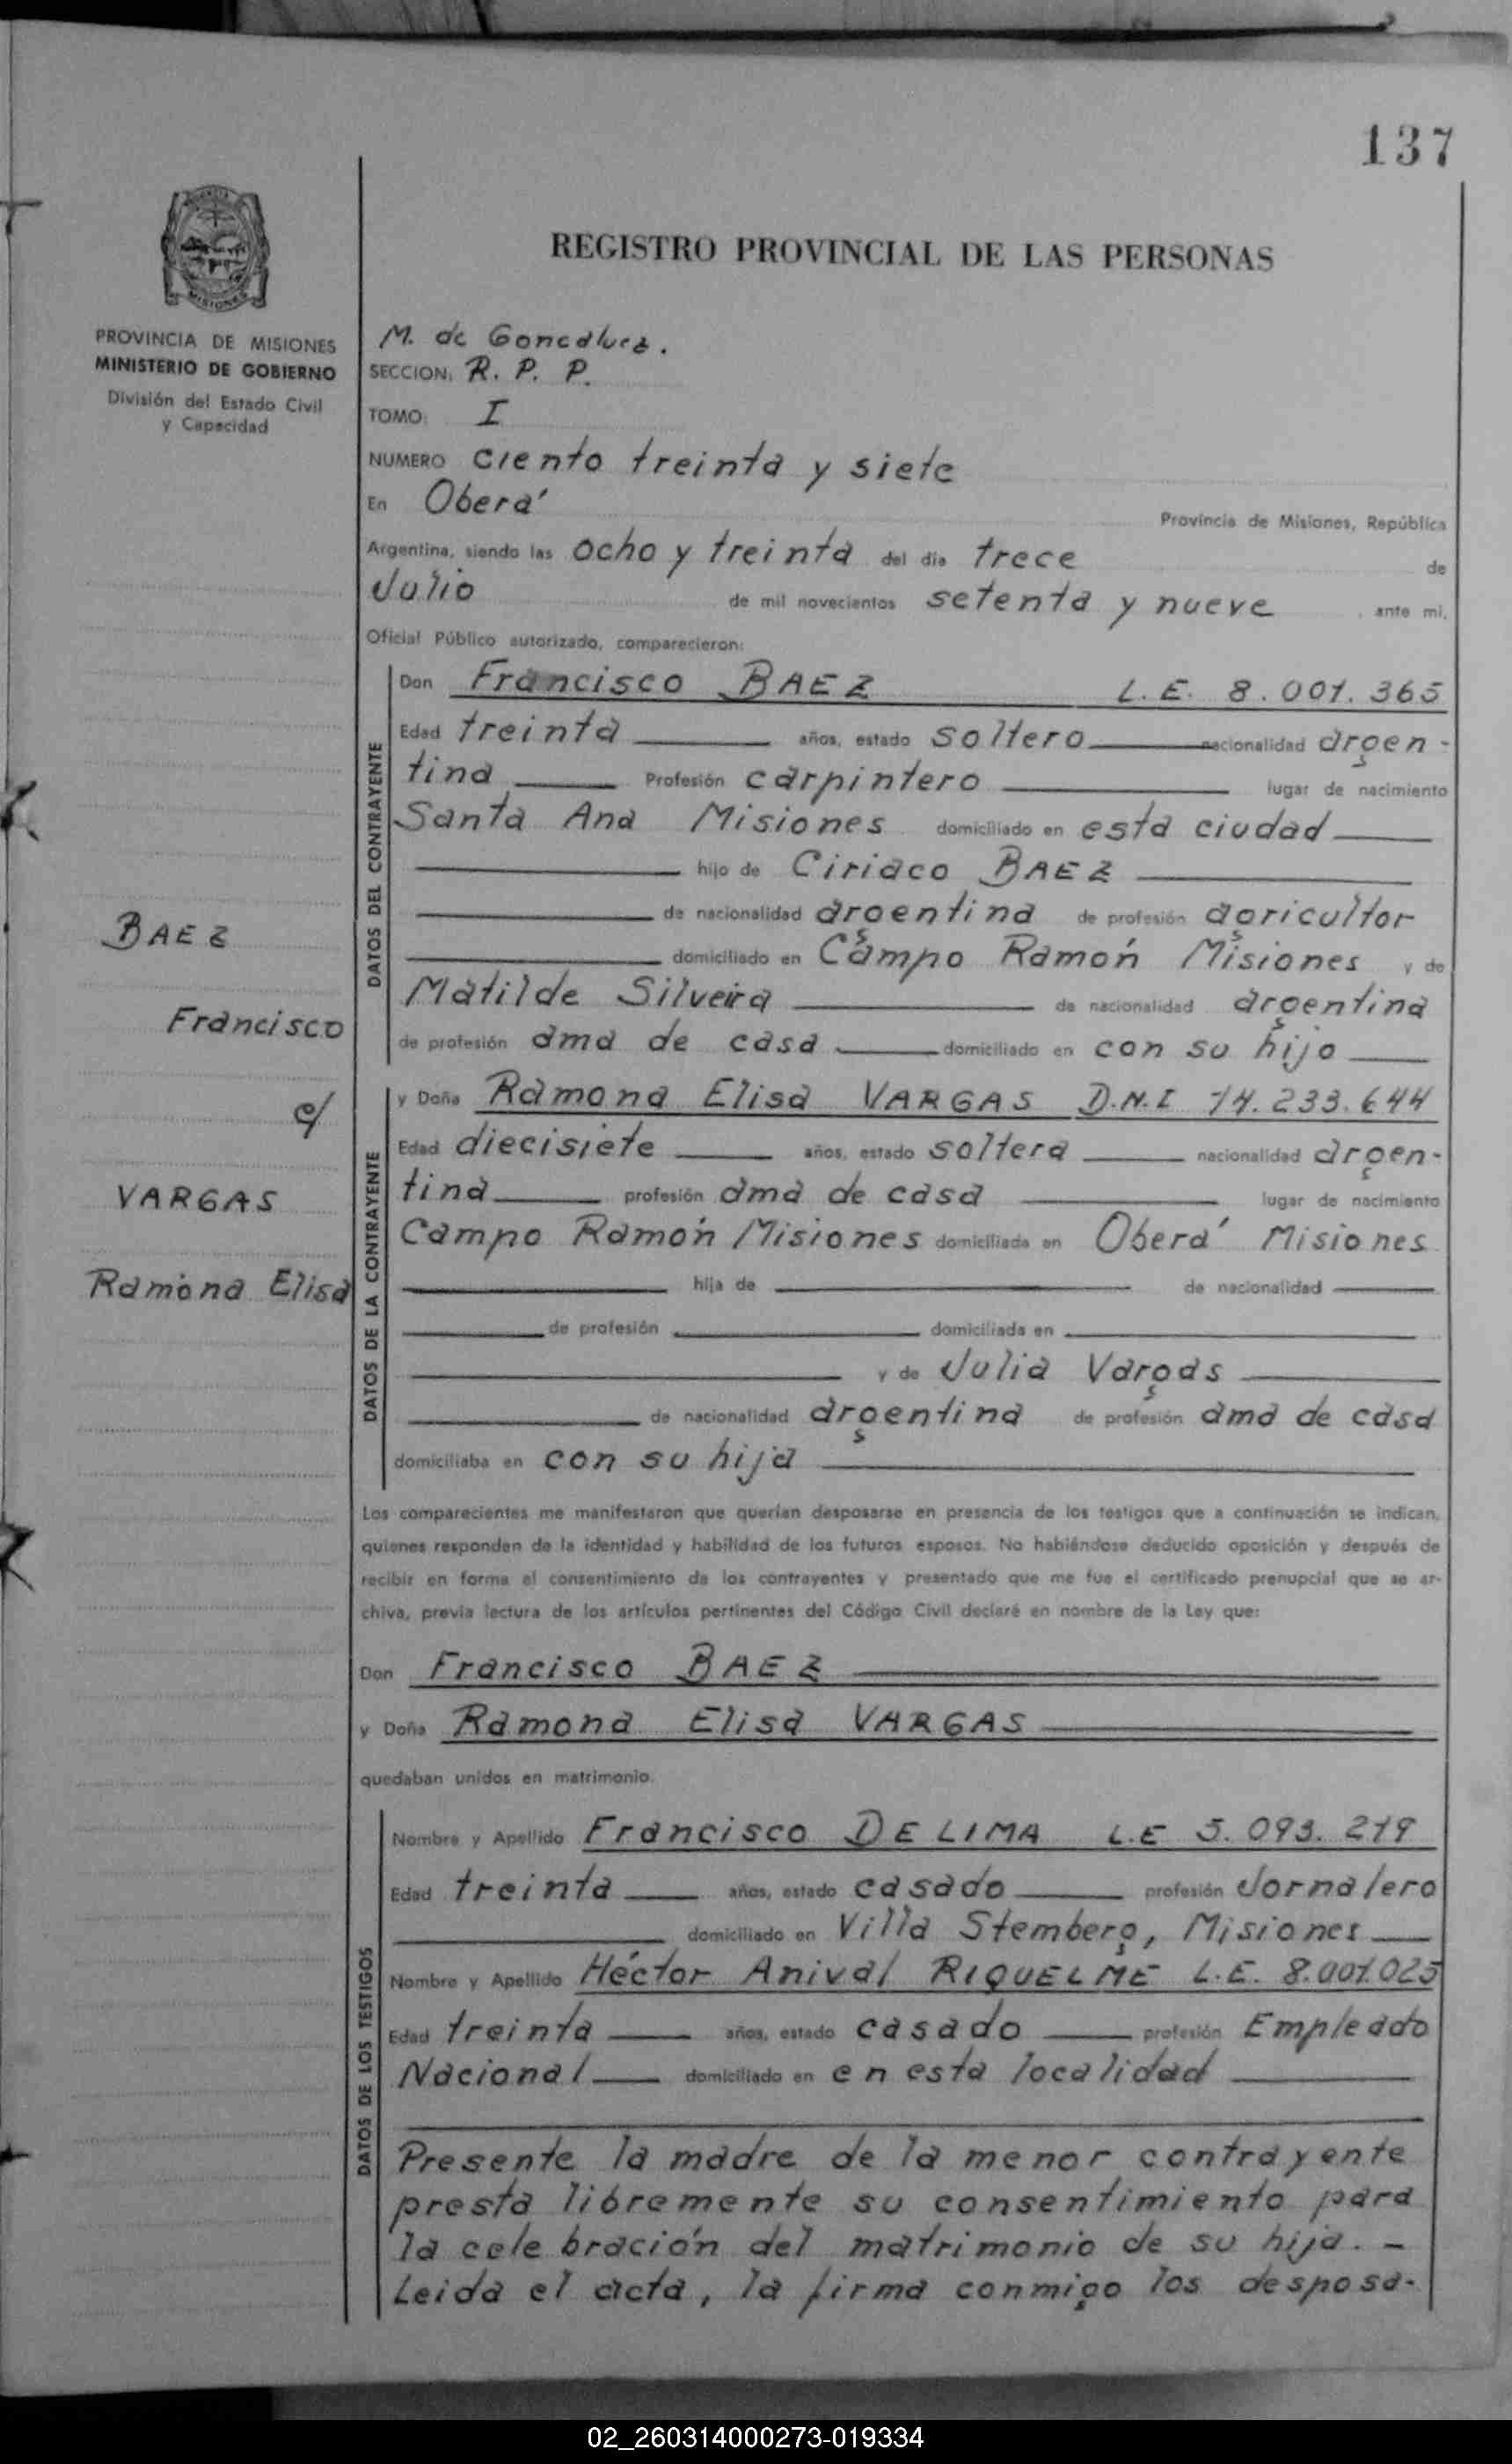 137
REGISTRO PROVINCIAL DE LAS PERSONAS
MISIONES
PROVINCIA DE MISIONES
MINISTERIO DE GOBIERNO
División del Estado Civil
y Capacidad
M. de Goncalves.
SECCION: R. P. P.
TOMO: I
NUMERO ciento treinta y siete
En Oberá Provincia de Misiones, República
Argentina, siendo las ocho y treinta del día trece de
Julio de mil novecientos setenta y nueve , ante mi,
Oficial Público autorizado, comparecieron:
DATOS DEL CONTRAYENTE
Don Francisco BAEZ L.E. 8.001.365
Edad treinta años, estado soltero nacionalidad argen-
tina Profesión carpintero lugar de nacimiento
Santa Ana Misiones domiciliado en esta ciudad
hijo de Ciriaco BAEZ
de nacionalidad argentina de profesión agricultor
domiciliado en Campo Ramón Misiones y de
Matilde Silveira de nacionalidad argentina
de profesión ama de casa domiciliado en con su hijo
BAEZ
Francisco
c/
VARGAS
Ramona Elisa
DATOS DE LA CONTRAYENTE
y Doña Ramona Elisa VARGAS D.N.I 14.233.644
Edad diecisiete años, estado soltera nacionalidad argen-
tina profesión ama de casa lugar de nacimiento
Campo Ramón Misiones domiciliada en Oberá Misiones
hija de de nacionalidad
de profesión domiciliada en
y de Julia Vargas
de nacionalidad argentina de profesión ama de casa
domiciliaba en con su hija
Los comparecientes me manifestaron que querían desposarse en presencia de los testigos que a continuación se indican,
quienes responden de la identidad y habilidad de los futuros esposos. No habiéndose deducido oposición y después de
recibir en forma el consentimiento de los contrayentes y presentado que me fue el certificado prenupcial que se ar-
chiva, previa lectura de los artículos pertinentes del Código Civil declaré en nombre de la Ley que:
Don Francisco BAEZ
y Doña Ramona Elisa VARGAS
quedaban unidos en matrimonio.
DATOS DE LOS TESTIGOS
Nombre y Apellido Francisco DE LIMA L.E 5.093.219
Edad treinta años, estado casado profesión Jornalero
domiciliado en Villa Stemberg, Misiones
Nombre y Apellido Héctor Anival RIQUELME L.E. 8.001.025
Edad treinta años, estado casado profesión Empleado
Nacional domiciliado en en esta localidad
Presente la madre de la menor contrayente
presta libremente su consentimiento para
la celebración del matrimonio de su hija. -
Leida el acta, la firma conmigo los desposa-
02_260314000273-019334